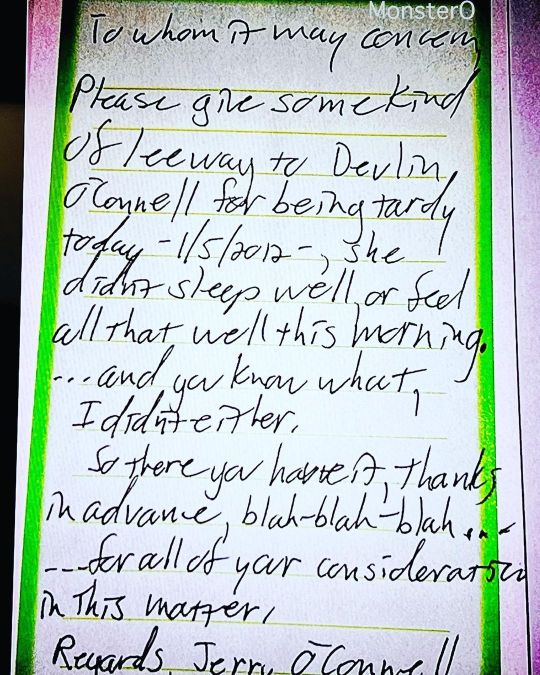 MonsterO
To whom it may concern,
Please give some kind
of leeway to Devlin
O'Connell for being tardy
today - 1/5/2012 -, she
didn't sleep well, or feel
all that well this morning.
...and you know what,
I didn't either.
So there you have it, thanks
in advance, blah-blah-blah...
---for all of your consideration
in this matter,
Regards, Jerry O'Connell